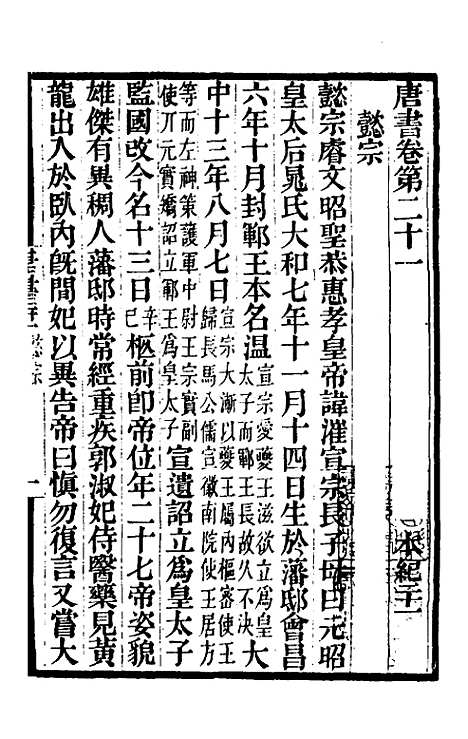 唐書卷第二十一
本紀二十一
懿宗
懿宗睿文昭聖恭惠孝皇帝諱漼宣宗長子母曰元昭
皇太后晁氏大和七年十一月十四日生於藩邸會昌
六年十月封鄆王本名溫宣宗愛夔王滋欲立為皇太子而鄆王長故久不決大
中十三年八月七日宣宗大漸以夔王屬內樞密使王歸長馬公儒宣徽南院使王居方
等而左神策護軍中尉王宗實副使丌元實矯詔立鄆王為皇太子宣遺詔立為皇太子
監國改今名十三日辛巳柩前卽帝位年二十七帝姿貌
雄傑有異稠人藩邸時常經重疾郭淑妃侍醫藥見黃
龍出入於臥內旣間妃以異告帝曰慎勿復言又嘗大
懿宗
一